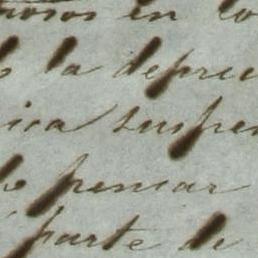 mosos en lo
la depre
ica suspen
pensar
parte de